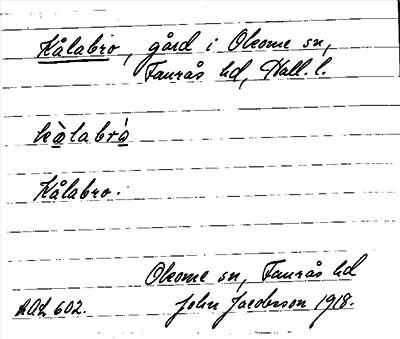 Kålabro, gård i Okome sn,
Faurås hd, Hall. l.
kàlabrȧ
Kålabro.
Okome sn, Faurås hd
602. John Jacobsson 1918.